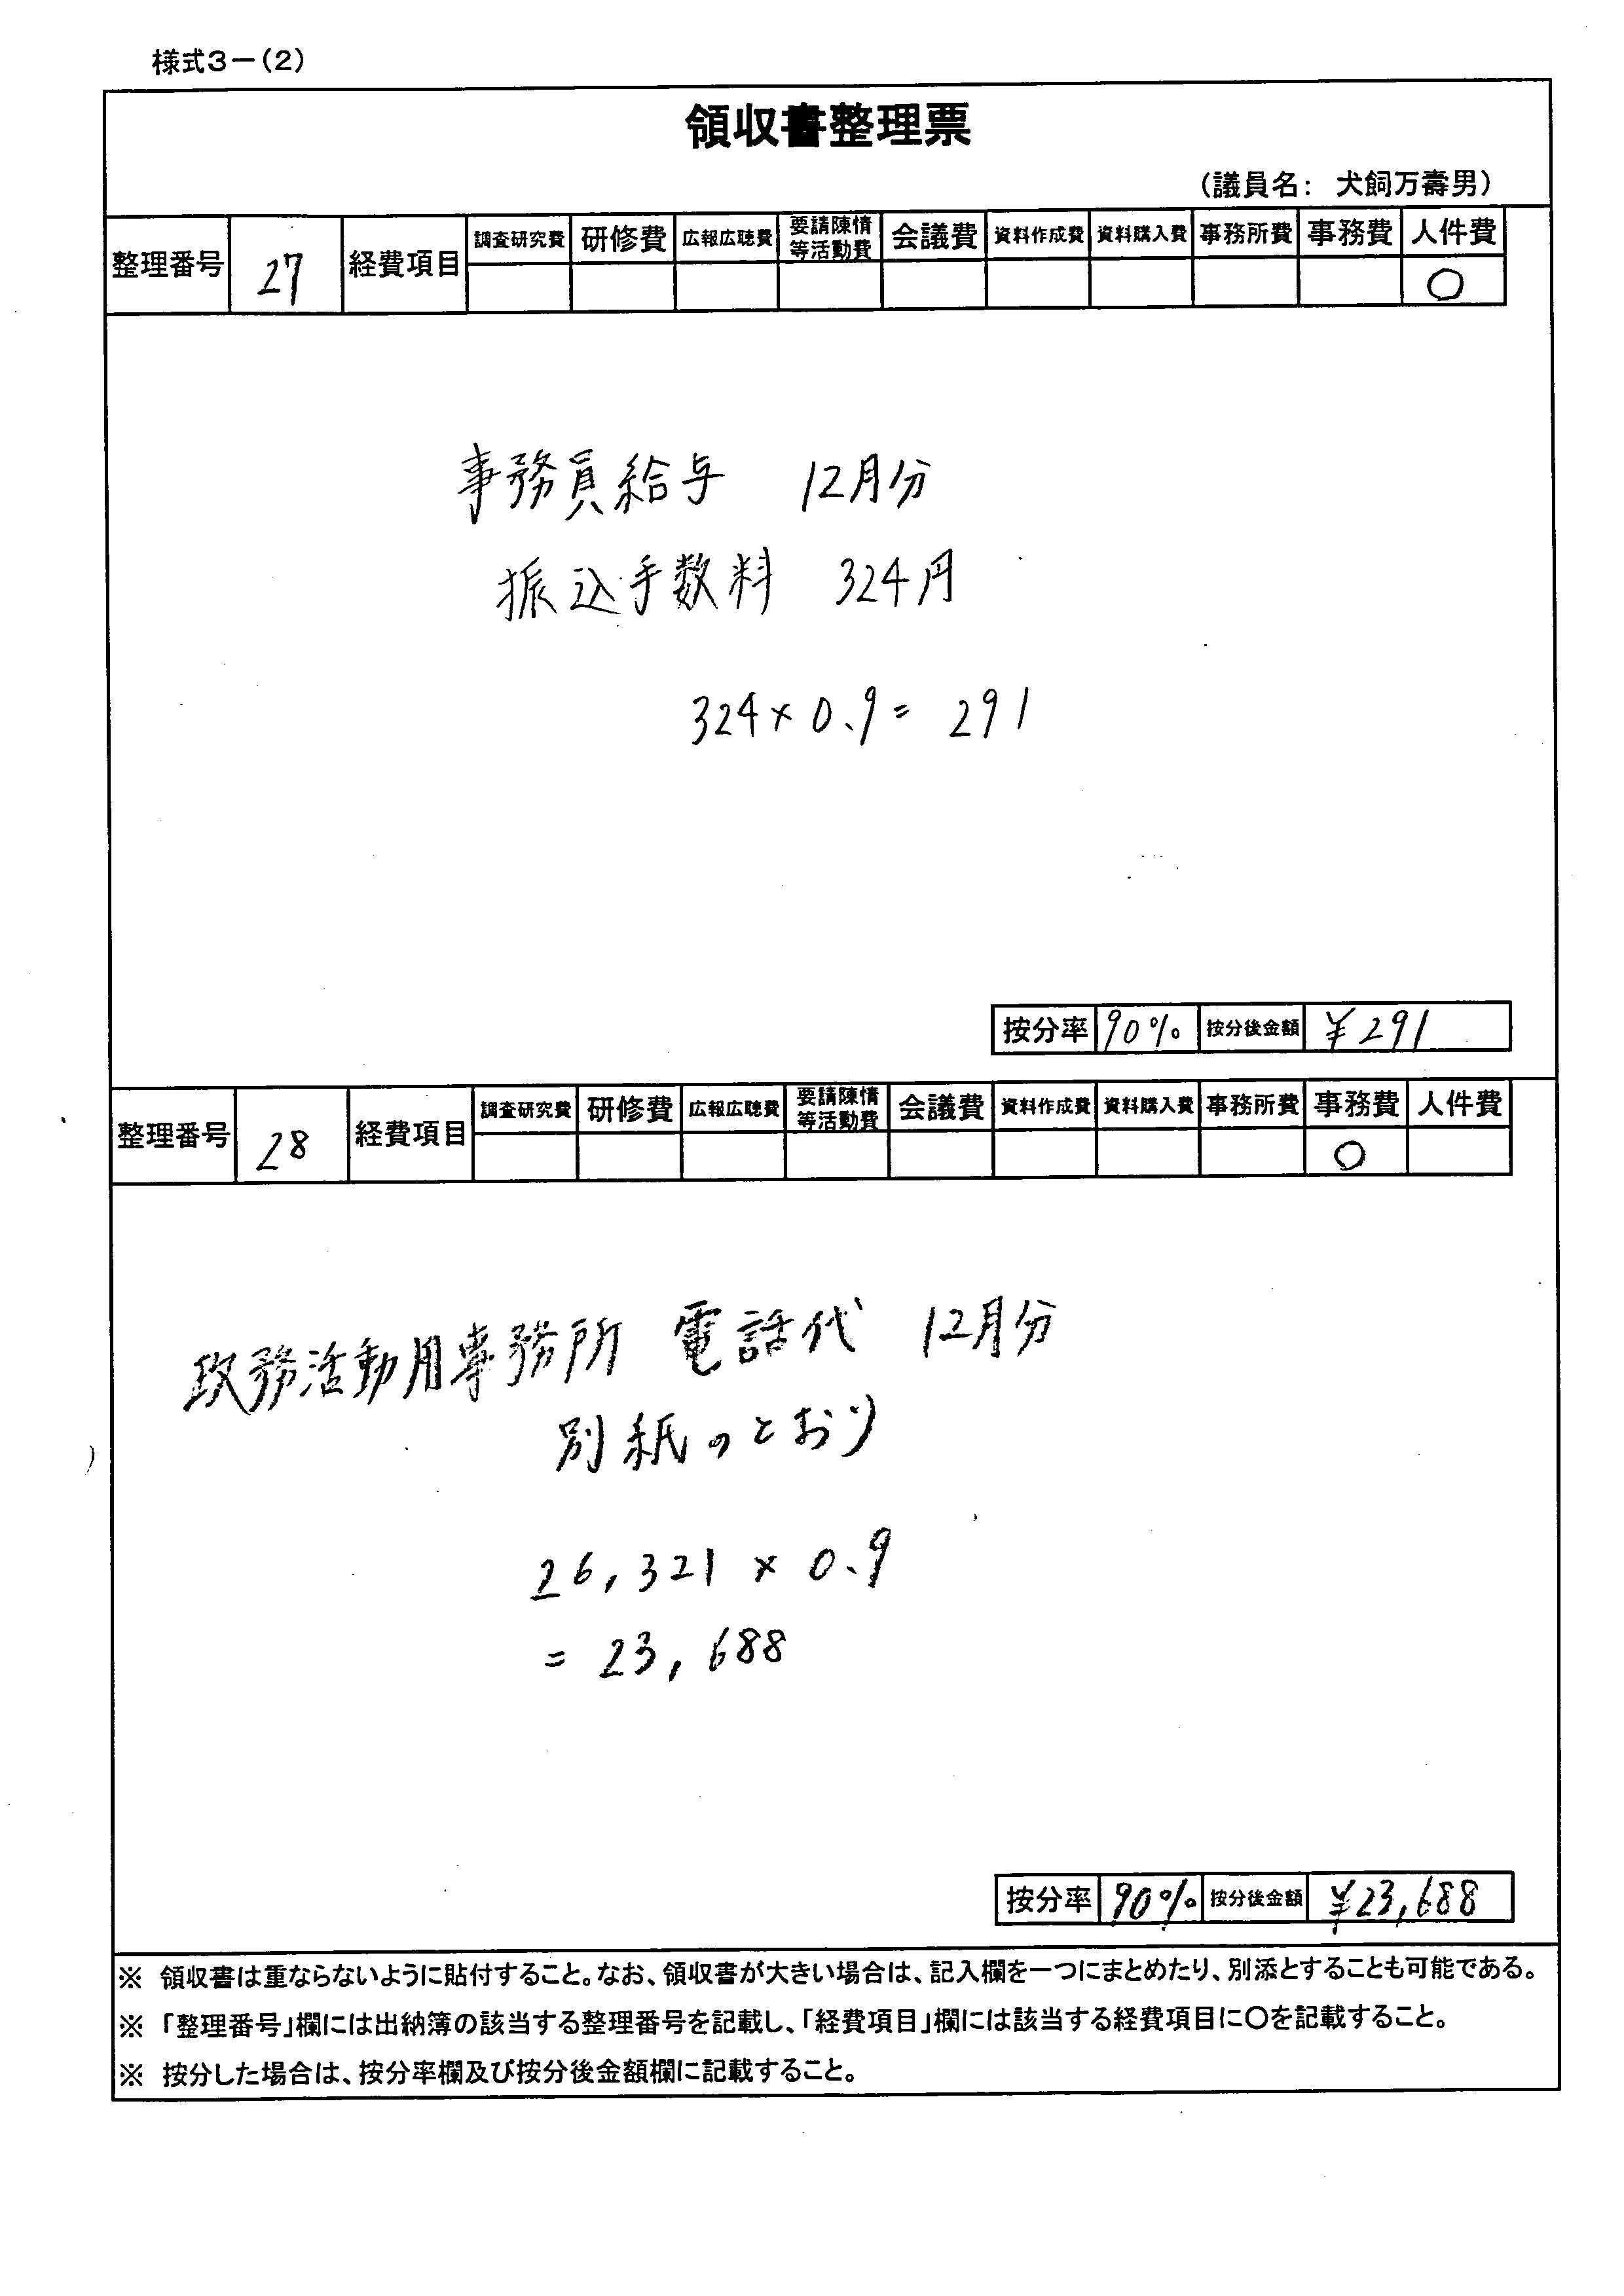 様式3－(2)
領収書整理票
(議員名： 犬飼万壽男)
整理番号 27 経費項目 調査研究費 研修費 広報広聴費 要請陳情等活動費 会議費 資料作成費 資料購入費 事務所費 事務費 人件費
○
事務員給与 12月分
振込手数料 324円
324×0.9= 291
按分率 90% 按分後金額 ¥291
整理番号 28 経費項目 調査研究費 研修費 広報広聴費 要請陳情等活動費 会議費 資料作成費 資料購入費 事務所費 事務費 人件費
○
政務活動用事務所 電話代 12月分
別紙のとおり
26,321 × 0.9
= 23,688
按分率 90% 按分後金額 ¥23,688
※ 領収書は重ならないように貼付すること。なお、領収書が大きい場合は、記入欄を一つにまとめたり、別添とすることも可能である。
※ 「整理番号」欄には出納簿の該当する整理番号を記載し、「経費項目」欄には該当する経費項目に○を記載すること。
※ 按分した場合は、按分率欄及び按分後金額欄に記載すること。